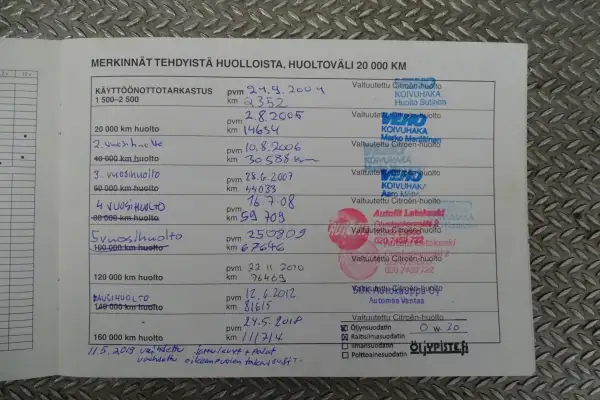 MERKINNÄT TEHDYISTÄ HUOLLOISTA, HUOLTOVÄLI 20 000 KM
KÄYTTÖÖNOTTOTARKASTUS
1 500–2 500
pvm 21.9.2004
km 2352
Valtuutettu Citroën-huolto
VEHO
KOIVUHAKA
Huolto Sutinen
20 000 km huolto
pvm 2.8.2005
km 14634
Valtuutettu Citroën-huolto
VEHO
KOIVUHAKA
2. vuosihuolto
40 000 km huolto
pvm 10.8.2006
km 30588 km
Valtuutettu Citroën-huolto
KOIVUHAKA
3. vuosihuolto
60 000 km huolto
pvm 28.6.2007
km 44033
Valtuutettu Citroën-huolto
VEHO
KOIVUHAKA
4 VUOSIHUOLTO
80 000 km huolto
pvm 16.7.08
km 59 709
Valtuutettu Citroën-huolto
Autofit Latokaski
020 7459 722
5 vuosihuolto
100 000 km huolto
pvm 250909
km 67646
Valtuutettu Citroën-huolto
Latokaski
020 7459 722
120 000 km huolto
pvm 22 11 2010
km 76409
Valtuutettu Citroën-huolto
VAUSIHUOLTO
140 000 km huolto
pvm 12.6.2012
km 81615
Valtuutettu Citroën-huolto
Automaa Vantaa
160 000 km huolto
pvm 24.5.2018
km 111714
Valtuutettu Citroën-huolto
Öljynsuodatin
Raitisilmasuodatin
Ilmansuodatin
Polttoainesuodatin
0 w 30
ÖLJYPISTE.fi
11.5.2019 vaihdettu jarrulevyt + palat